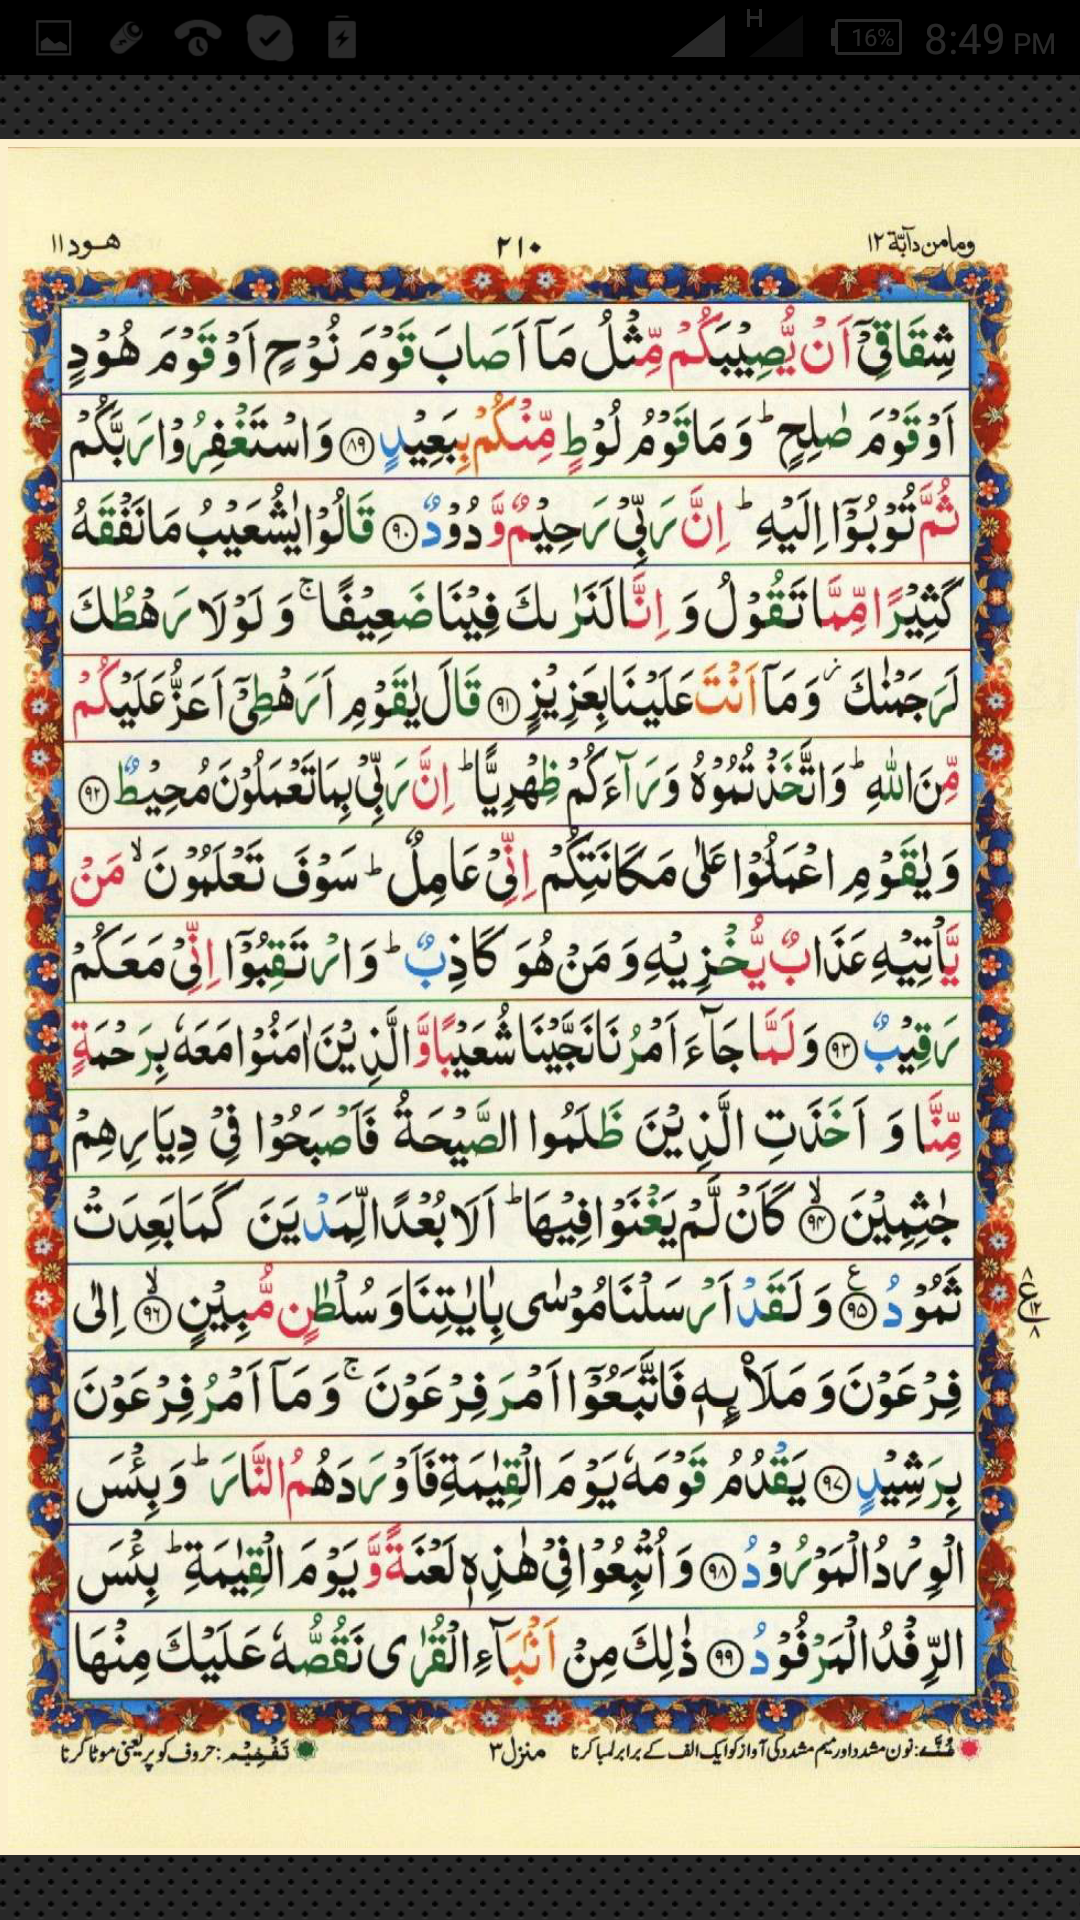 H 16% 8:49 PM
ومامن دآبّة ١٢ ٢١٠ هود ١١
شِقَاقِيْۤ اَنْ يُّصِيْبَكُمْ مِّثْلُ مَاۤ اَصَابَ قَوْمَ نُوْحٍ اَوْ قَوْمَ هُوْدٍ
اَوْ قَوْمَ صٰلِحٍ ؕ وَ مَا قَوْمُ لُوْطٍ مِّنْكُمْ بِبَعِيْدٍ ﴿٨٩﴾ وَ اسْتَغْفِرُوْا رَبَّكُمْ
ثُمَّ تُوْبُوْۤا اِلَيْهِ ؕ اِنَّ رَبِّيْ رَحِيْمٌ وَّ دُوْدٌ ﴿٩٠﴾ قَالُوْا يٰشُعَيْبُ مَا نَفْقَهُ
كَثِيْرًا مِّمَّا تَقُوْلُ وَ اِنَّا لَنَرٰىكَ فِيْنَا ضَعِيْفًا ۚ وَ لَوْلَا رَهْطُكَ
لَرَجَمْنٰكَ ؗ وَ مَاۤ اَنْتَ عَلَيْنَا بِعَزِيْزٍ ﴿٩١﴾ قَالَ يٰقَوْمِ اَرَهْطِيْۤ اَعَزُّ عَلَيْكُمْ
مِّنَ اللّٰهِ ؕ وَ اتَّخَذْتُمُوْهُ وَرَآءَكُمْ ظِهْرِيًّا ؕ اِنَّ رَبِّيْ بِمَا تَعْمَلُوْنَ مُحِيْطٌ ﴿٩٢﴾
وَ يٰقَوْمِ اعْمَلُوْا عَلٰى مَكَانَتِكُمْ اِنِّيْ عَامِلٌ ؕ سَوْفَ تَعْلَمُوْنَ ۙ مَنْ
يَّاْتِيْهِ عَذَابٌ يُّخْزِيْهِ وَ مَنْ هُوَ كَاذِبٌ ؕ وَ ارْتَقِبُوْۤا اِنِّيْ مَعَكُمْ
رَقِيْبٌ ﴿٩٣﴾ وَ لَمَّا جَآءَ اَمْرُنَا نَجَّيْنَا شُعَيْبًا وَّ الَّذِيْنَ اٰمَنُوْا مَعَهٗ بِرَحْمَةٍ
مِّنَّا وَ اَخَذَتِ الَّذِيْنَ ظَلَمُوا الصَّيْحَةُ فَاَصْبَحُوْا فِيْ دِيَارِهِمْ
جٰثِمِيْنَ ۙ﴿٩٤﴾ كَاَنْ لَّمْ يَغْنَوْا فِيْهَا ؕ اَلَا بُعْدًا لِّمَدْيَنَ كَمَا بَعِدَتْ
ثَمُوْدُ ﴿٩٥﴾ ع وَ لَقَدْ اَرْسَلْنَا مُوْسٰى بِاٰيٰتِنَا وَ سُلْطٰنٍ مُّبِيْنٍ ۙ﴿٩٦﴾ اِلٰى
٨ ع ١٢ ٨
فِرْعَوْنَ وَ مَلَا۠ئِهٖ فَاتَّبَعُوْۤا اَمْرَ فِرْعَوْنَ ۚ وَ مَاۤ اَمْرُ فِرْعَوْنَ
بِرَشِيْدٍ ﴿٩٧﴾ يَقْدُمُ قَوْمَهٗ يَوْمَ الْقِيٰمَةِ فَاَوْرَدَهُمُ النَّارَ ؕ وَ بِئْسَ
الْوِرْدُ الْمَوْرُوْدُ ﴿٩٨﴾ وَ اُتْبِعُوْا فِيْ هٰذِهٖ لَعْنَةً وَّ يَوْمَ الْقِيٰمَةِ ؕ بِئْسَ
الرِّفْدُ الْمَرْفُوْدُ ﴿٩٩﴾ ذٰلِكَ مِنْ اَنْۢبَآءِ الْقُرٰى نَقُصُّهٗ عَلَيْكَ مِنْهَا
غُنَّہ: نون مشدد اور میم مشدد کی آواز کو ایک الف کے برابر لمبا کرنا منزل ٣ تَفْخِيْم: حروف کو پر یعنی موٹا کرنا